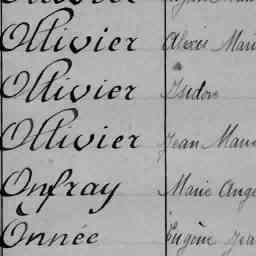 Ollivier Alexis Marie
Ollivier Isidore
Ollivier Jean Marie
Onfray Marie Ange
Onnée Eugène Jean